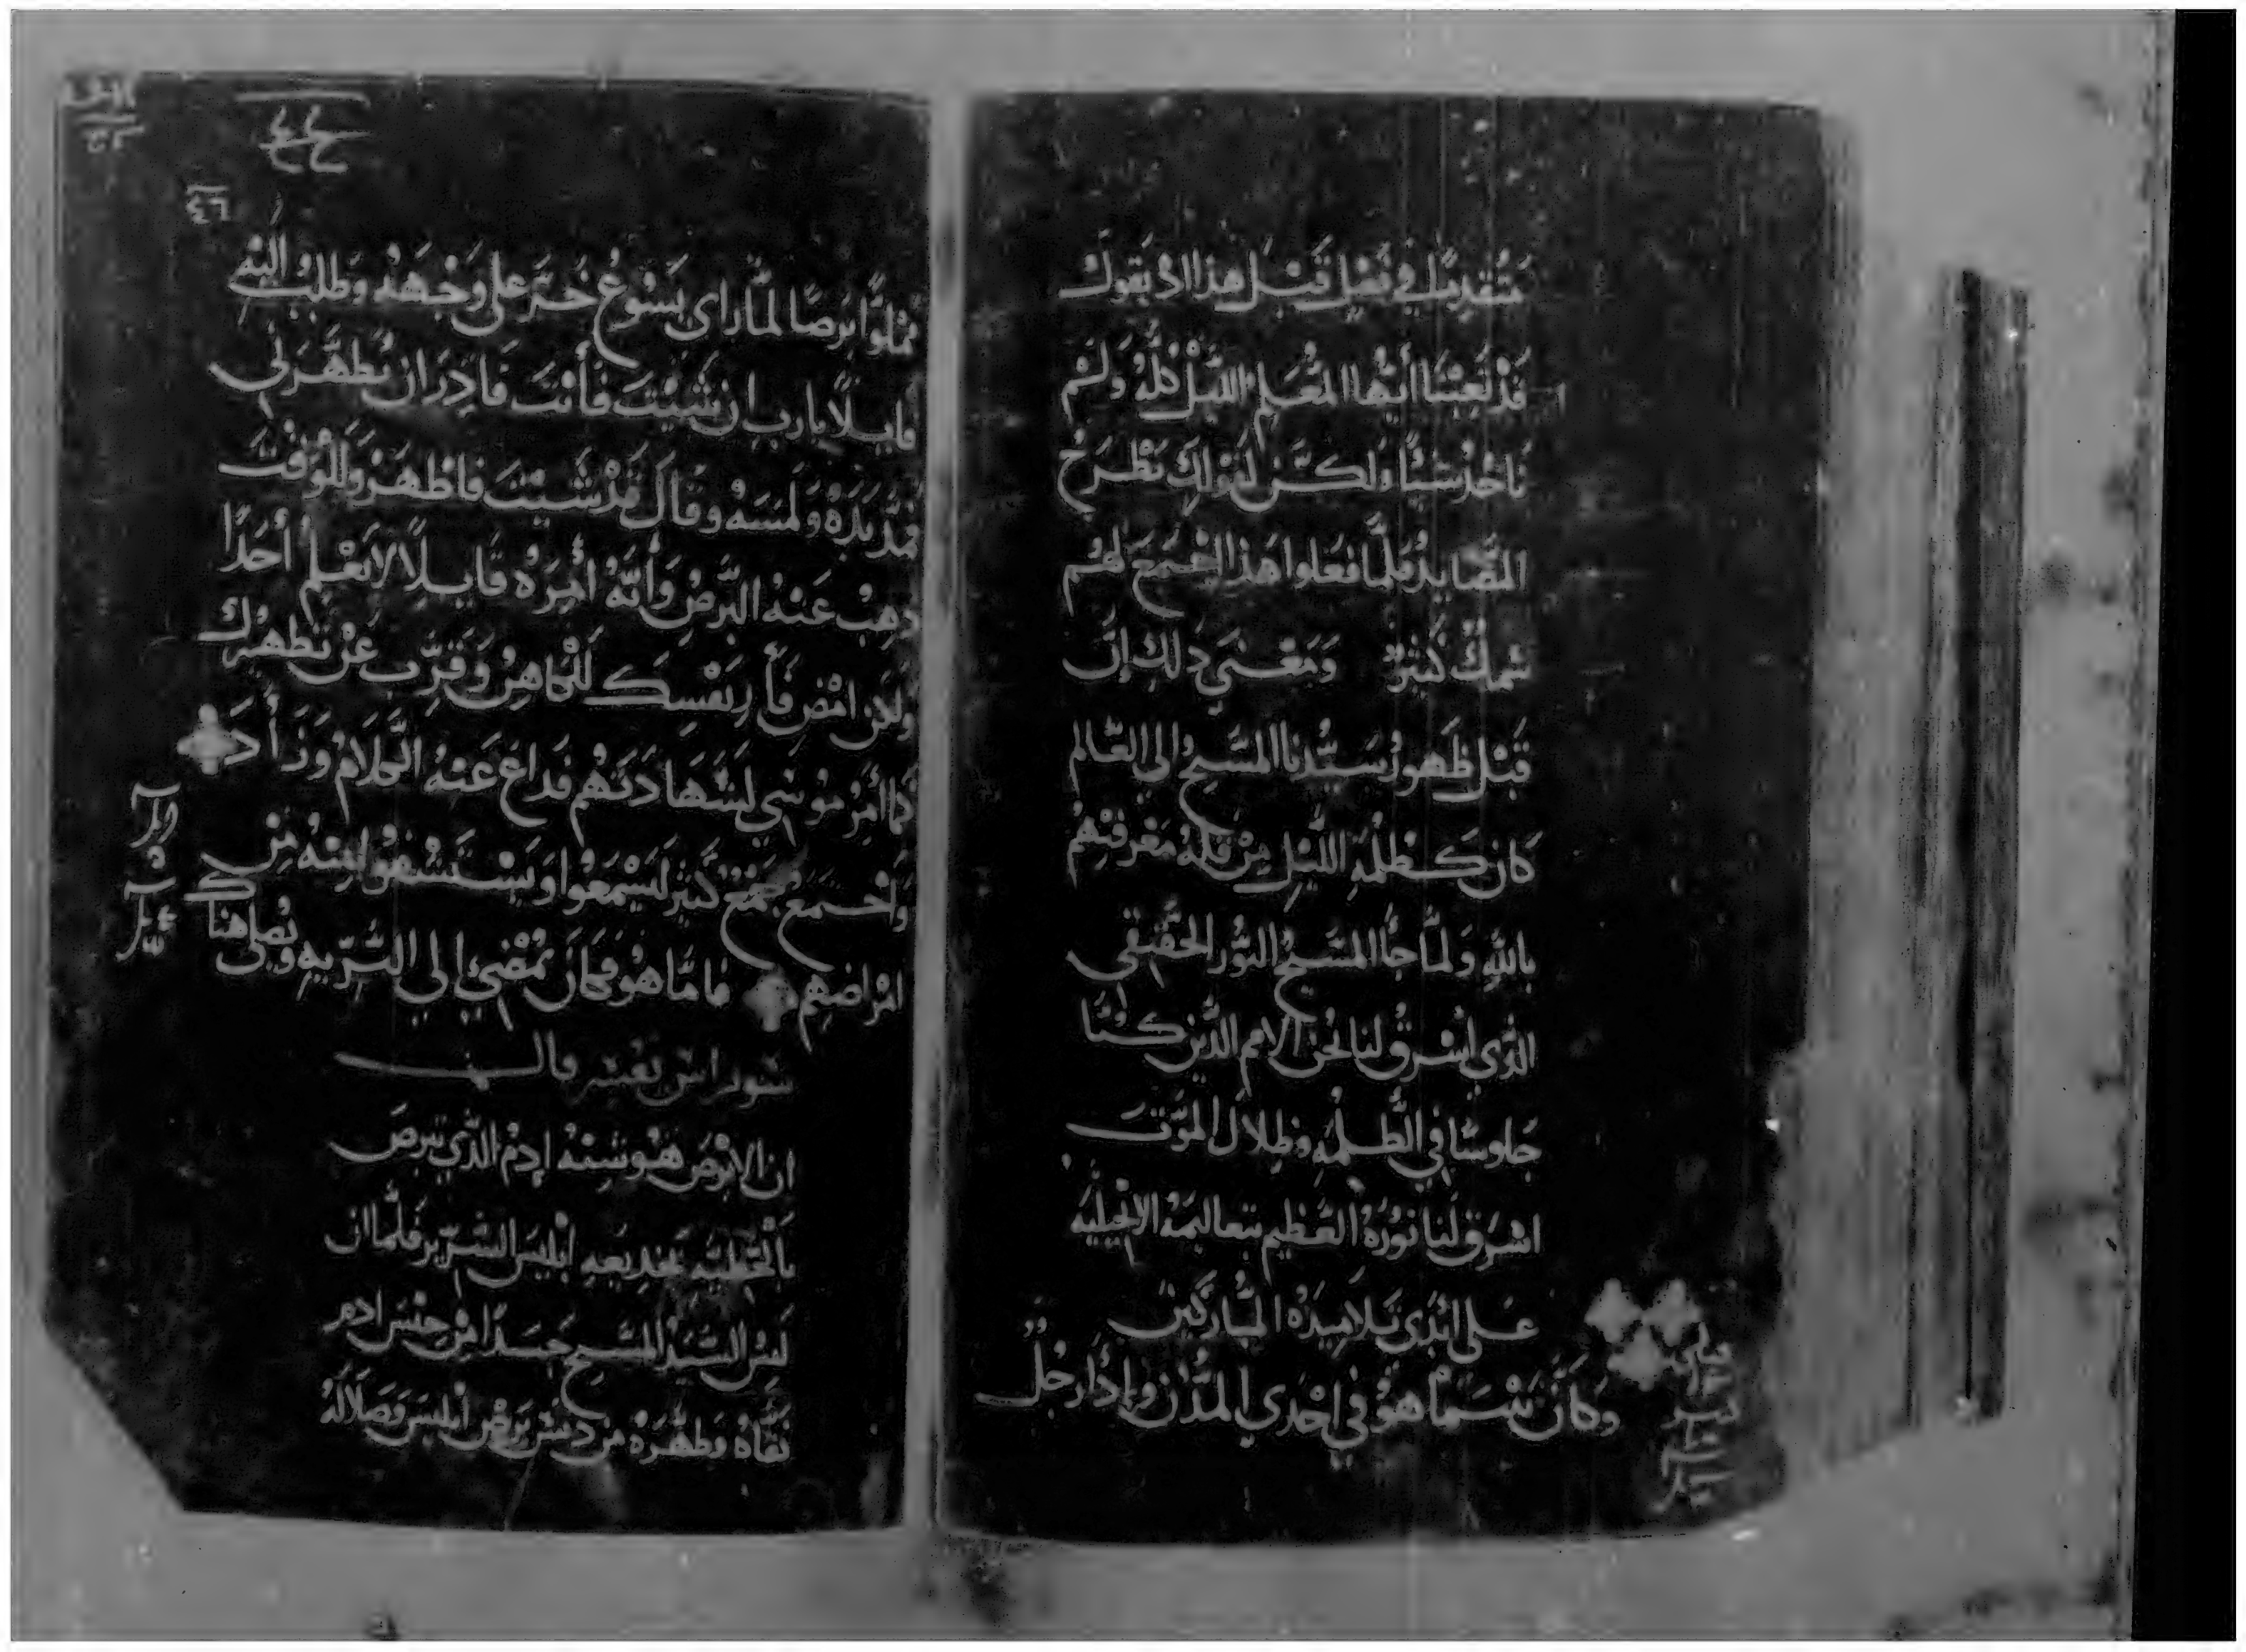 متقدمًا في فعل قبل هذا اذ يقول
قد تعبنا أيها المعلم الليل كله ولم
ناخذ شيًا ولكن لقولك نطرح
المصايد فلما فعلوا هذا اجتمع لهم
سمك كثير ومعنى ذلك إن
قبل ظهور سيدنا المسيح الي العالم
كان كظلمة الليل من قلة معرفتهم
بالله ولما جا المسيح النور الحقيقي
الذي أشرق لنا نحن الامم الذين كنا
جلوسًا في الظلمه وظلال الموت
اشرق لنا نوره العظيم بتعاليمه الانجيليه
على ايدي تلاميذه المباركين
وكان بينما هو في احدي المدن واذا رجل
٤٦
مملوًا برصًا لما راى يسوع خر على وجهه وطلب اليه
قايلًا يا رب ان شيت فأنت قادر ان تطهرني
فمد يده ولمسه وقال قد شيت فاطهر وللوقت
ذهب عنه البرص وأنه أمره قايلًا لا تعلم أحدًا
ولكن امض فأر نفسك للكاهن وقرب عن تطهيرك
كما أمر موسى لشهادتهم فذاع عنه الكلام وزأد
واجتمع جمع كثير ليسمعوا ويستشفوا منه من
امراضهم فاما هو فكان يمضي الي البريه ويصلي هناك
ان الابرص هو شبه ادم الذي تبرص
بالخطيه بخديعه ابليس الشرير فلما ان
لبس السيد المسيح جسدًا من جنس ادم
نقاه وطهره من دنس برص ابليس وضلاله